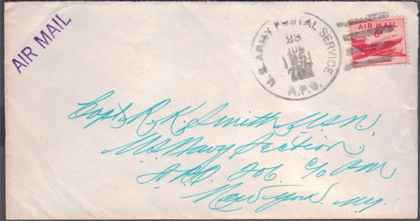 AIR MAIL
U.S. ARMY POSTAL SERVICE
23
1951
A.P.O.
6¢
Capt. R. K. Smith, USN.
US Navy Section
A.P.O. 206 c/o P.M
New York. N.Y.